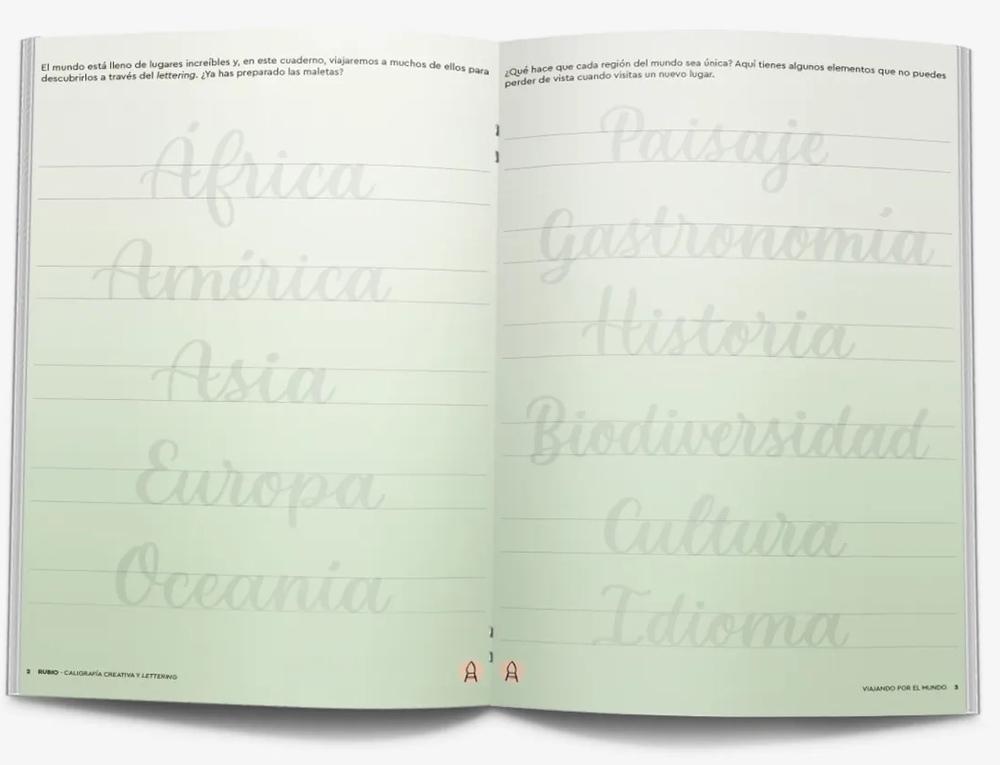 El mundo está lleno de lugares increíbles y, en este cuaderno, viajaremos a muchos de ellos para
descubrirlos a través del lettering. ¿Ya has preparado las maletas?
África
América
Asia
Europa
Oceanía
2 RUBIO - CALIGRAFÍA CREATIVA Y LETTERING
¿Qué hace que cada región del mundo sea única? Aquí tienes algunos elementos que no puedes
perder de vista cuando visitas un nuevo lugar.
Paisaje
Gastronomía
Historia
Biodiversidad
Cultura
Idioma
VIAJANDO POR EL MUNDO 3